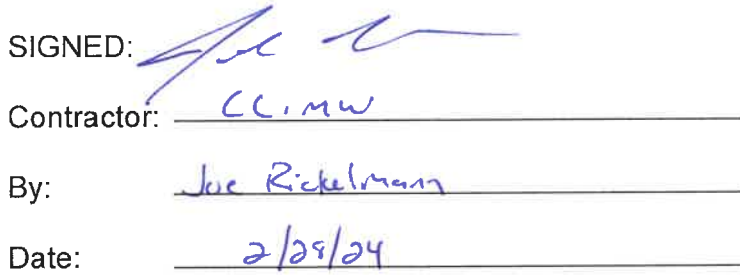 SIGNED:
Contractor: CCIMW
By: Joe Rickelmann
Date: 2/28/24